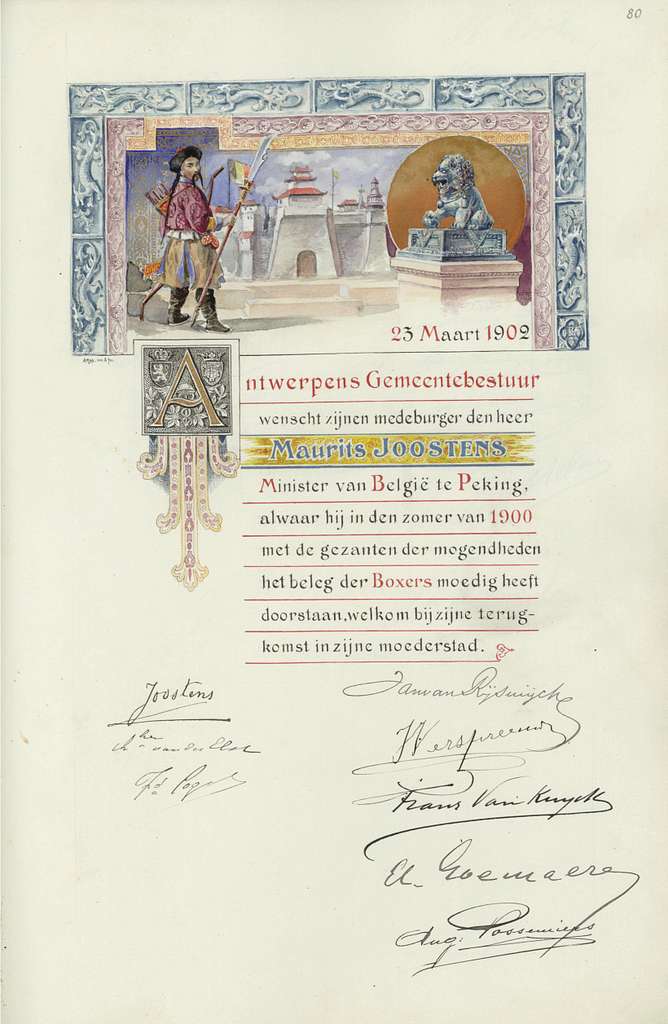 80
23 Maart 1902
Antwerpens Gemeentebestuur
wenscht zijnen medeburger den heer
Maurits JOOSTENS
Minister van België te Peking,
alwaar hij in den zomer van 1900
met de gezanten der mogendheden
het beleg der Boxers moedig heeft
doorstaan, welkom bij zijne terug-
komst in zijne moederstad.
Joostens
Jan van Rijswijck
van der Elst
Frans Van Kuyck
El. Goemaere
Aug.